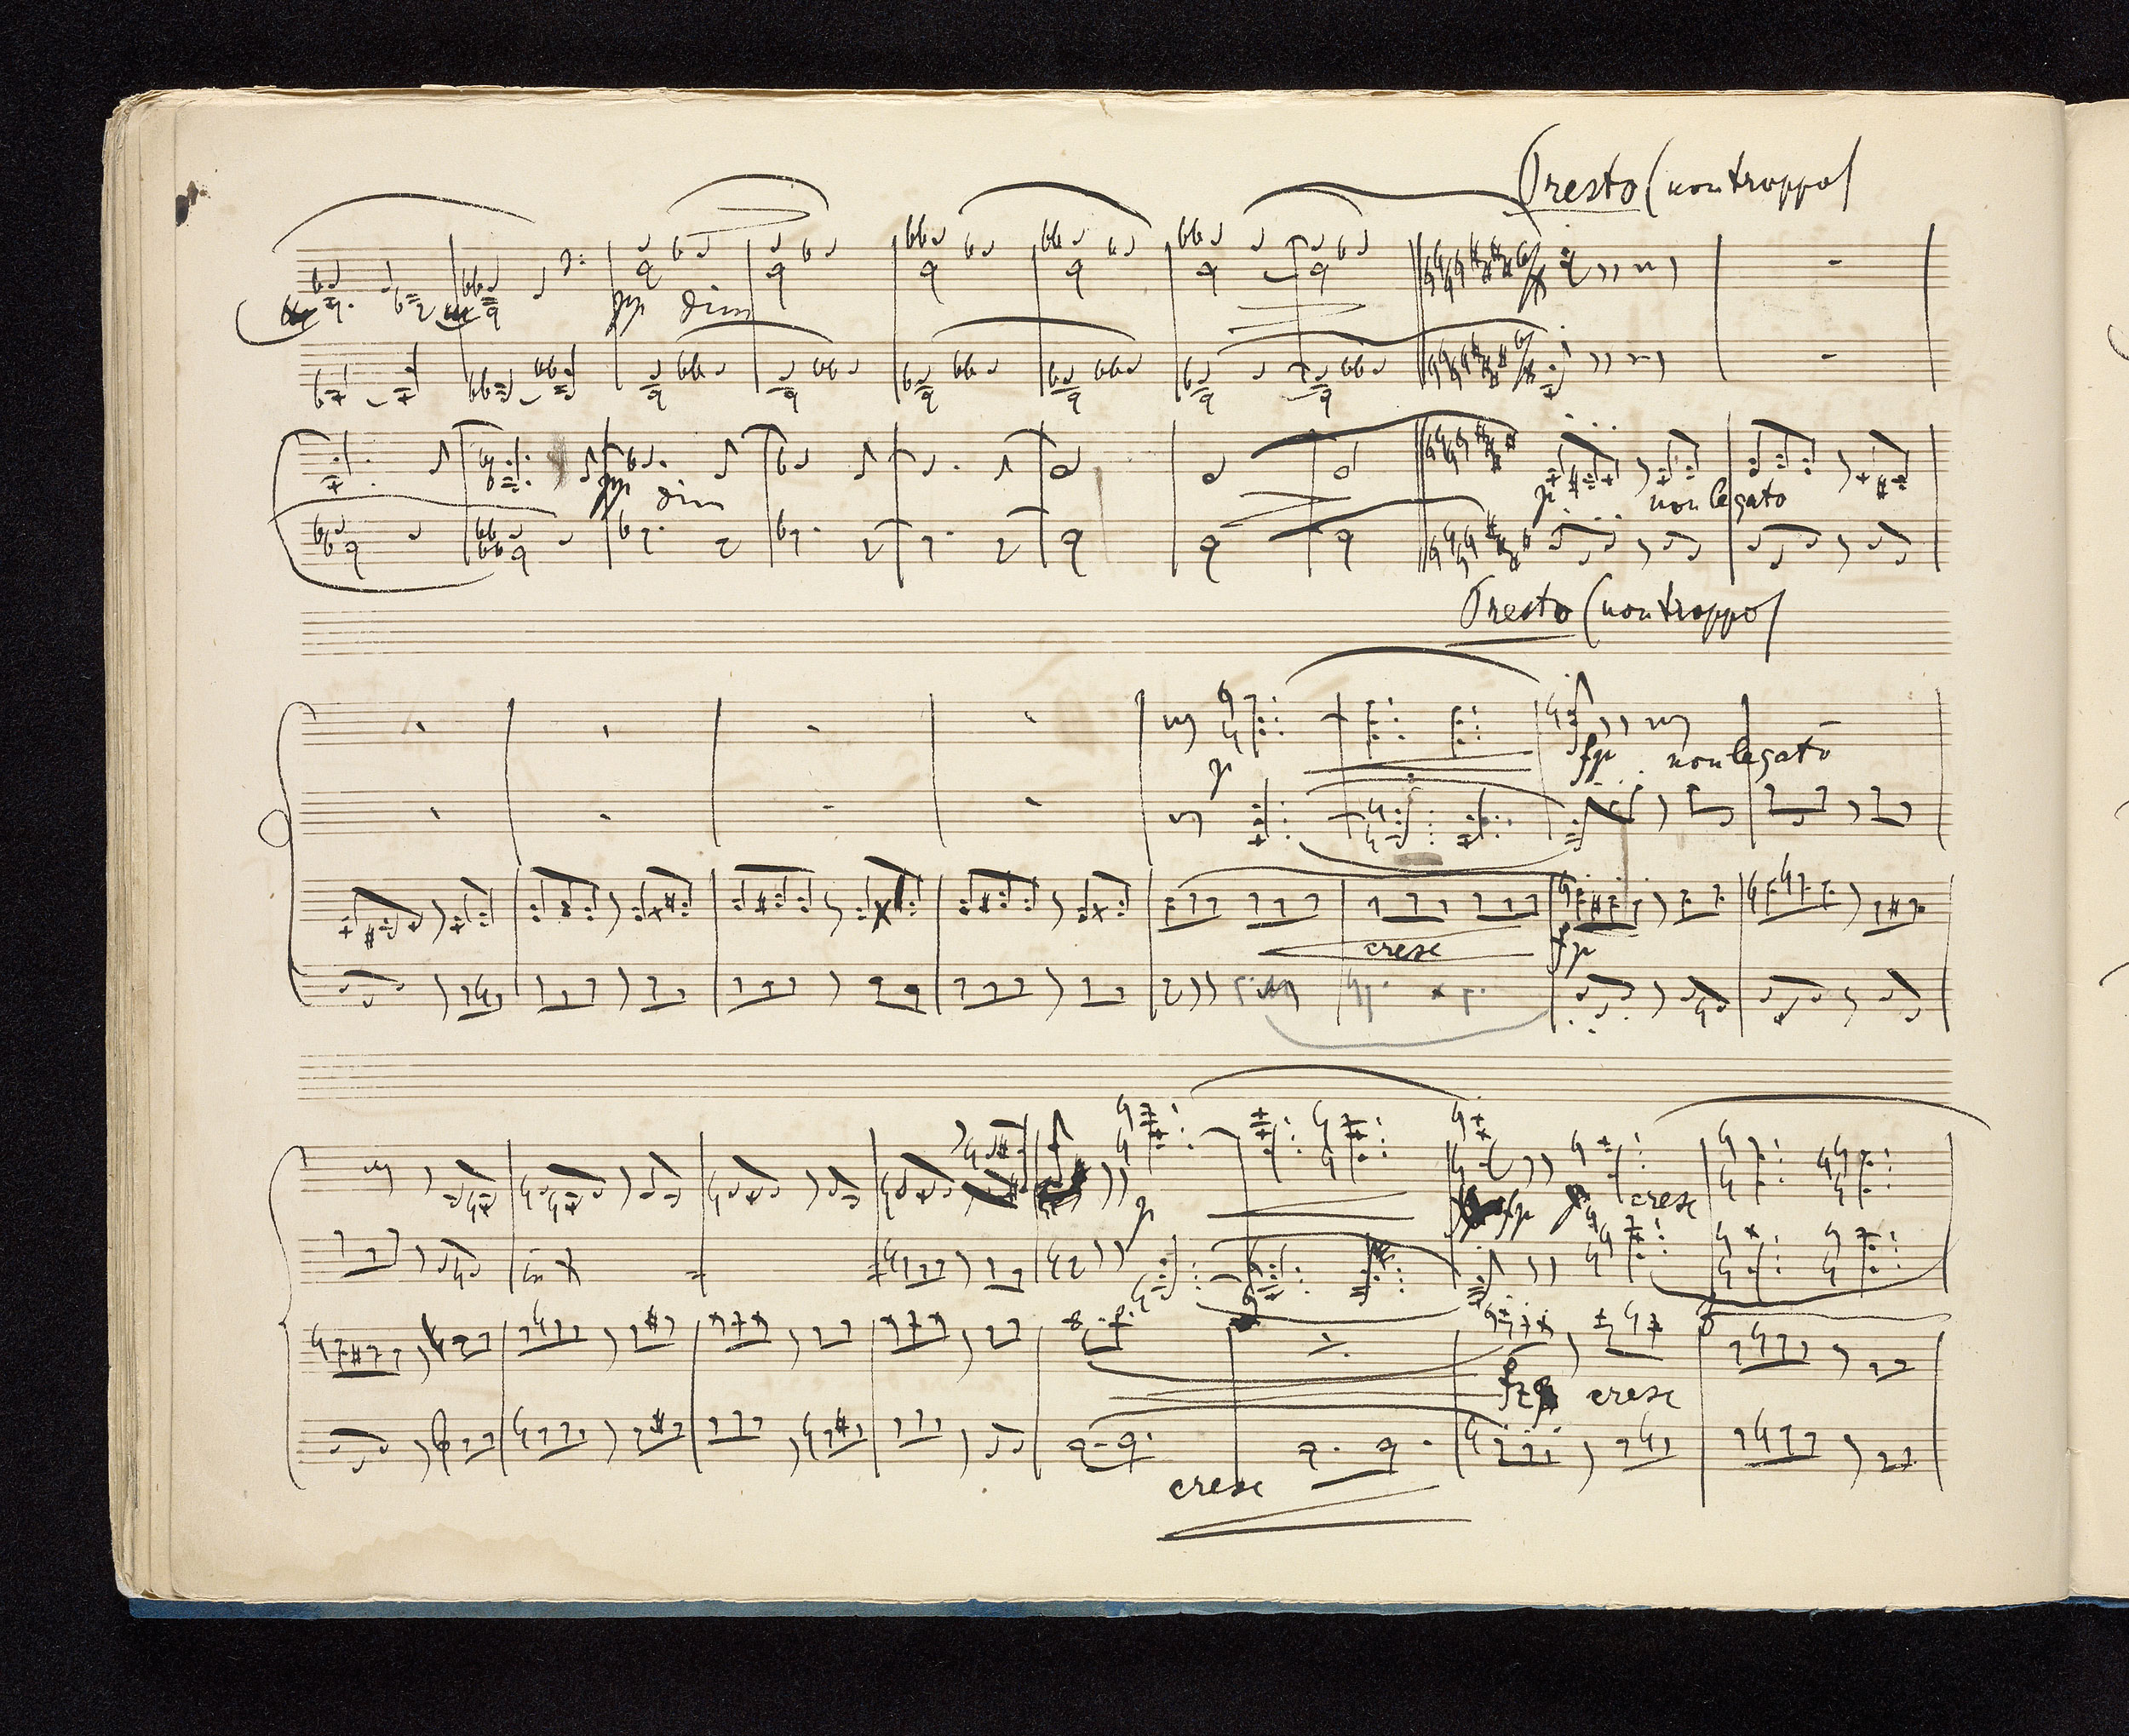 Presto (non troppo)
pp dim
pp dim
p non legato
Presto (non troppo)
p
fp non legato
cresc
fp
p
fp
cresc
fz cresc
cresc